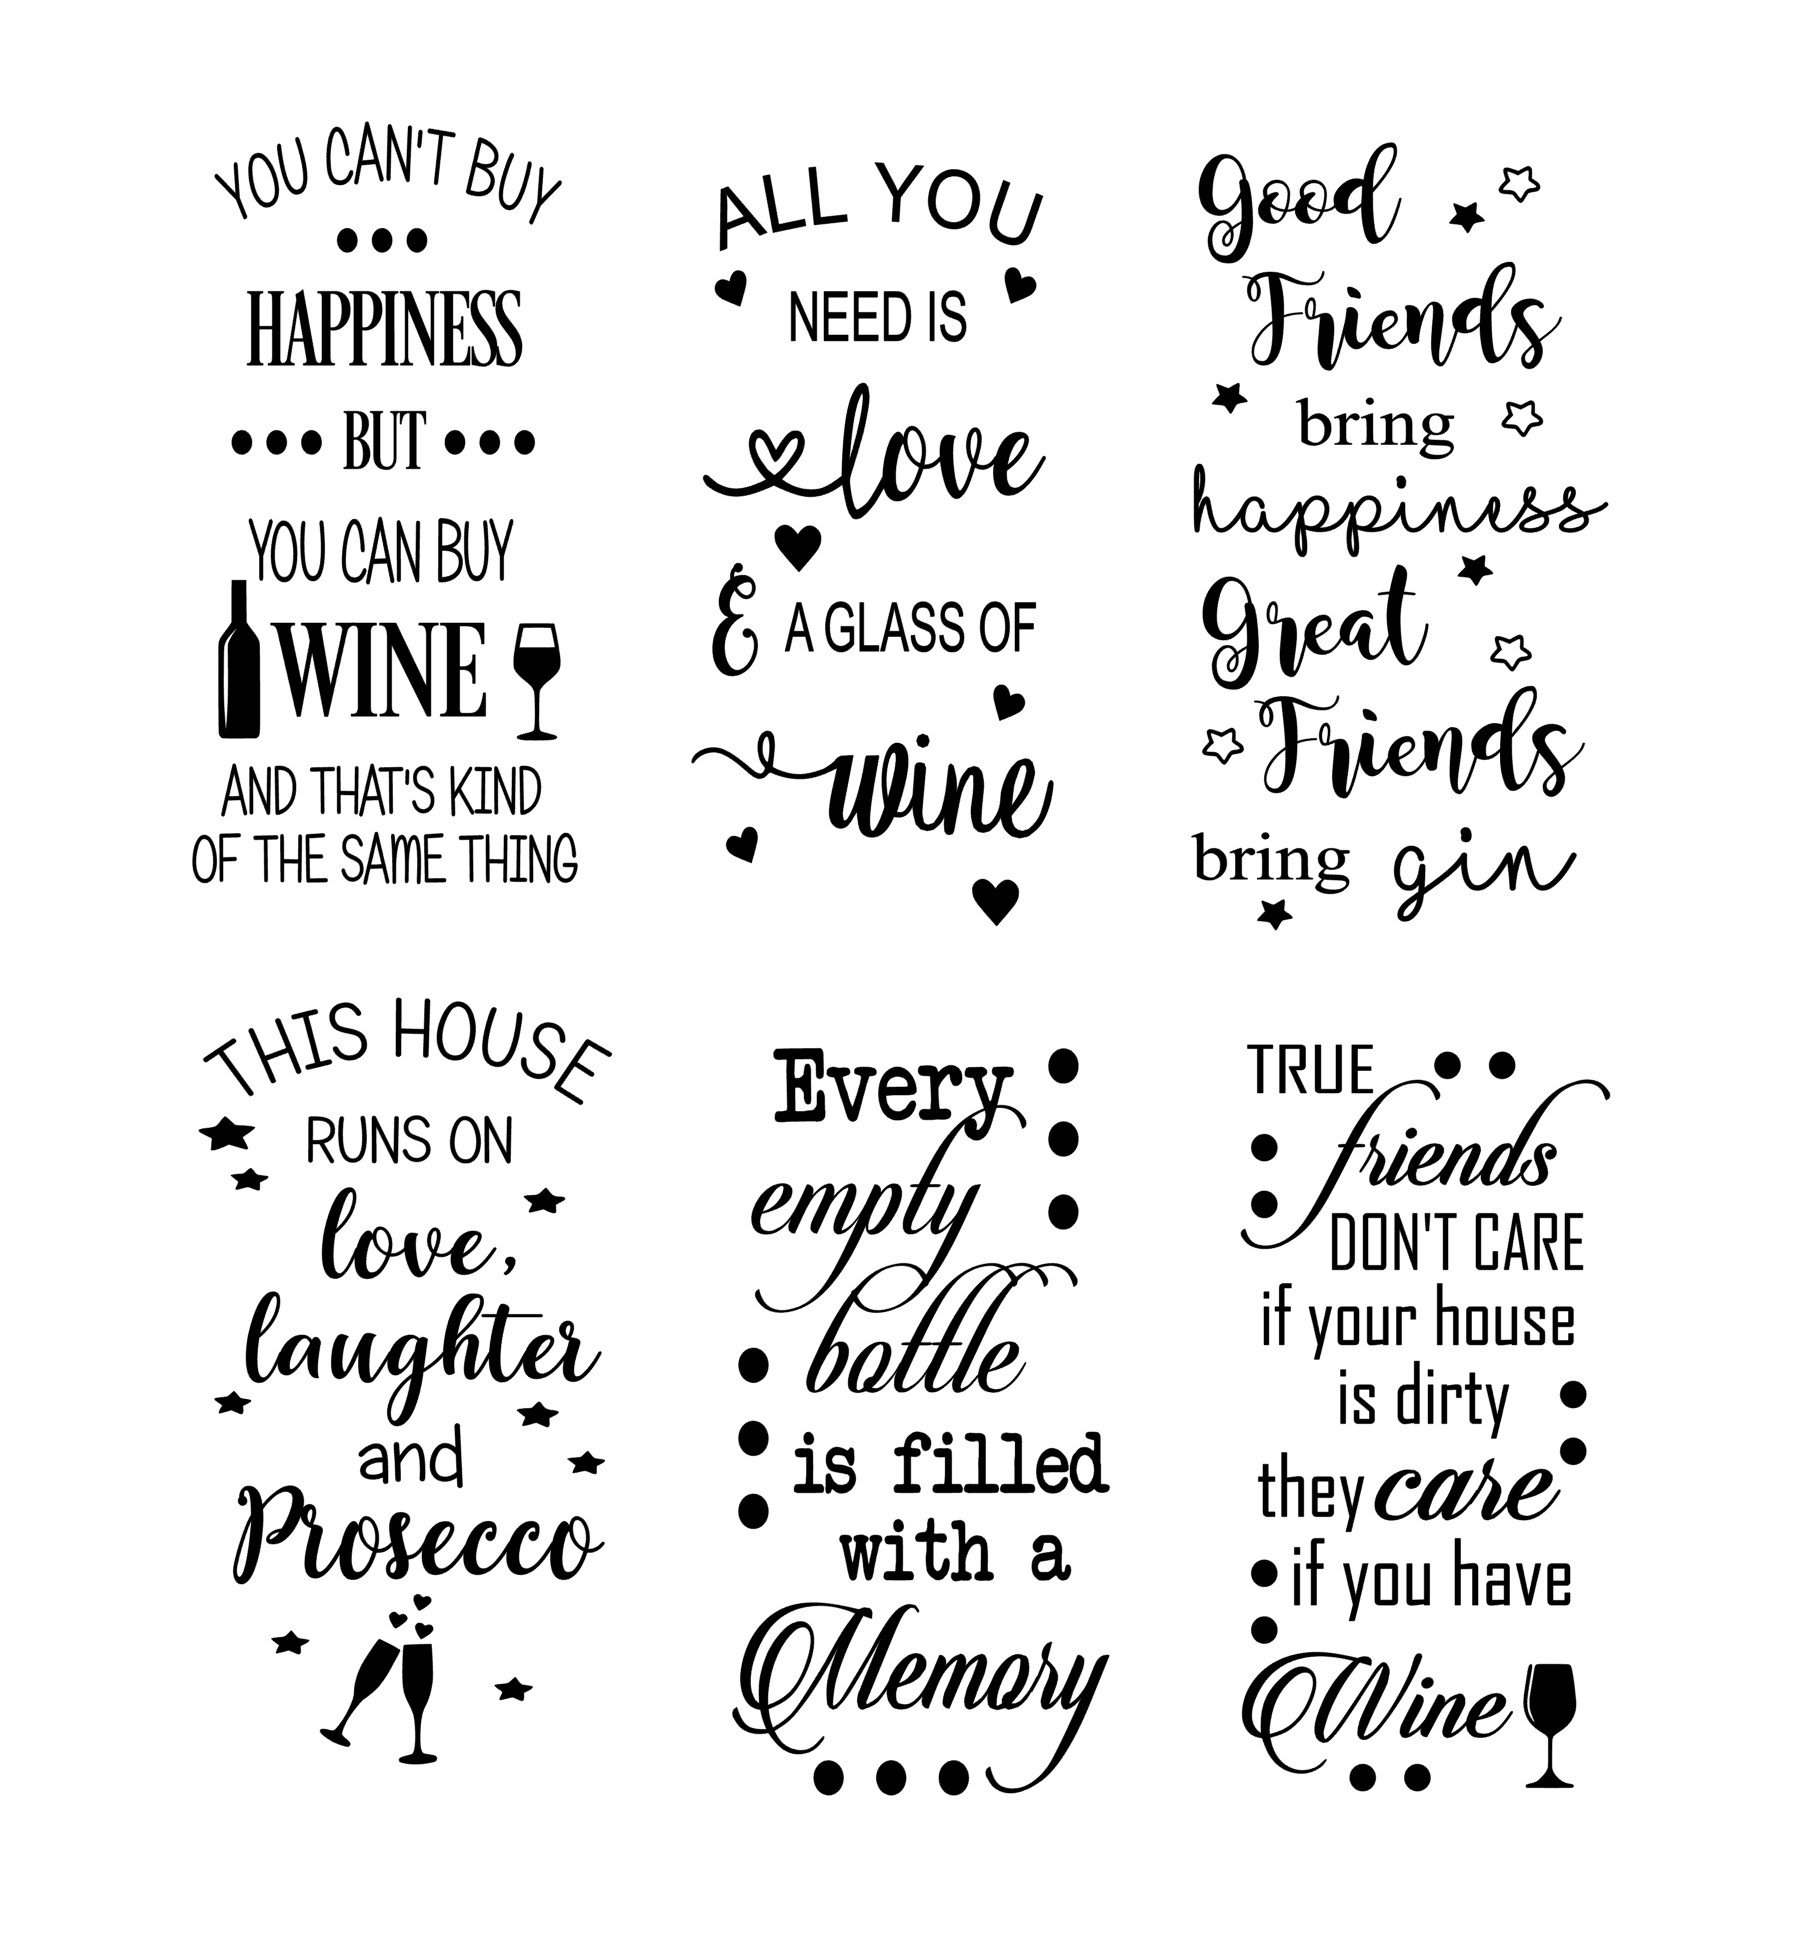 YOU CAN'T BUY
HAPPINESS
BUT
YOU CAN BUY
WINE
AND THAT'S KIND
OF THE SAME THING
ALL YOU
NEED IS
love
& A GLASS OF
wine
Good
Friends
bring
happiness
Great
Friends
bring gin
THIS HOUSE
RUNS ON
love,
laughter
and
Prosecco
Every
empty
bottle
is filled
with a
Memory
TRUE
friends
DON'T CARE
if your house
is dirty
they care
if you have
Wine